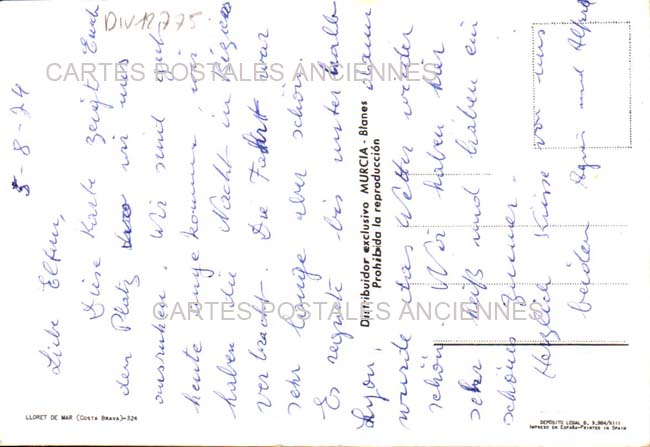 DIV12775
5-8-74
Liebe Eltern,
Diese Karte zeigt Euch
den Platz wo wir uns
ausruhen. Wir sind erst
heute angekommen, wir
haben die Nacht in
verbracht. Die Fahrt war
sehr lange aber schön.
Es regnete bis unterhalb
Lyon, dann
wurde das Wetter wieder
schön. Wir haben hier
sehr heiß und haben ein
schönes Zimmer.
Herzlich Küsse von uns
beiden Agnes und Alfred
CARTES POSTALES ANCIENNES
CARTES POSTALES ANCIENNES
Distribuidor exclusivo MURCIA - Blanes
Prohibida la reproducción
LLORET DE MAR (COSTA BRAVA)-324
DEPÓSITO LEGAL B. 3.964/XIII
IMPRESO EN ESPAÑA-PRINTED IN SPAIN